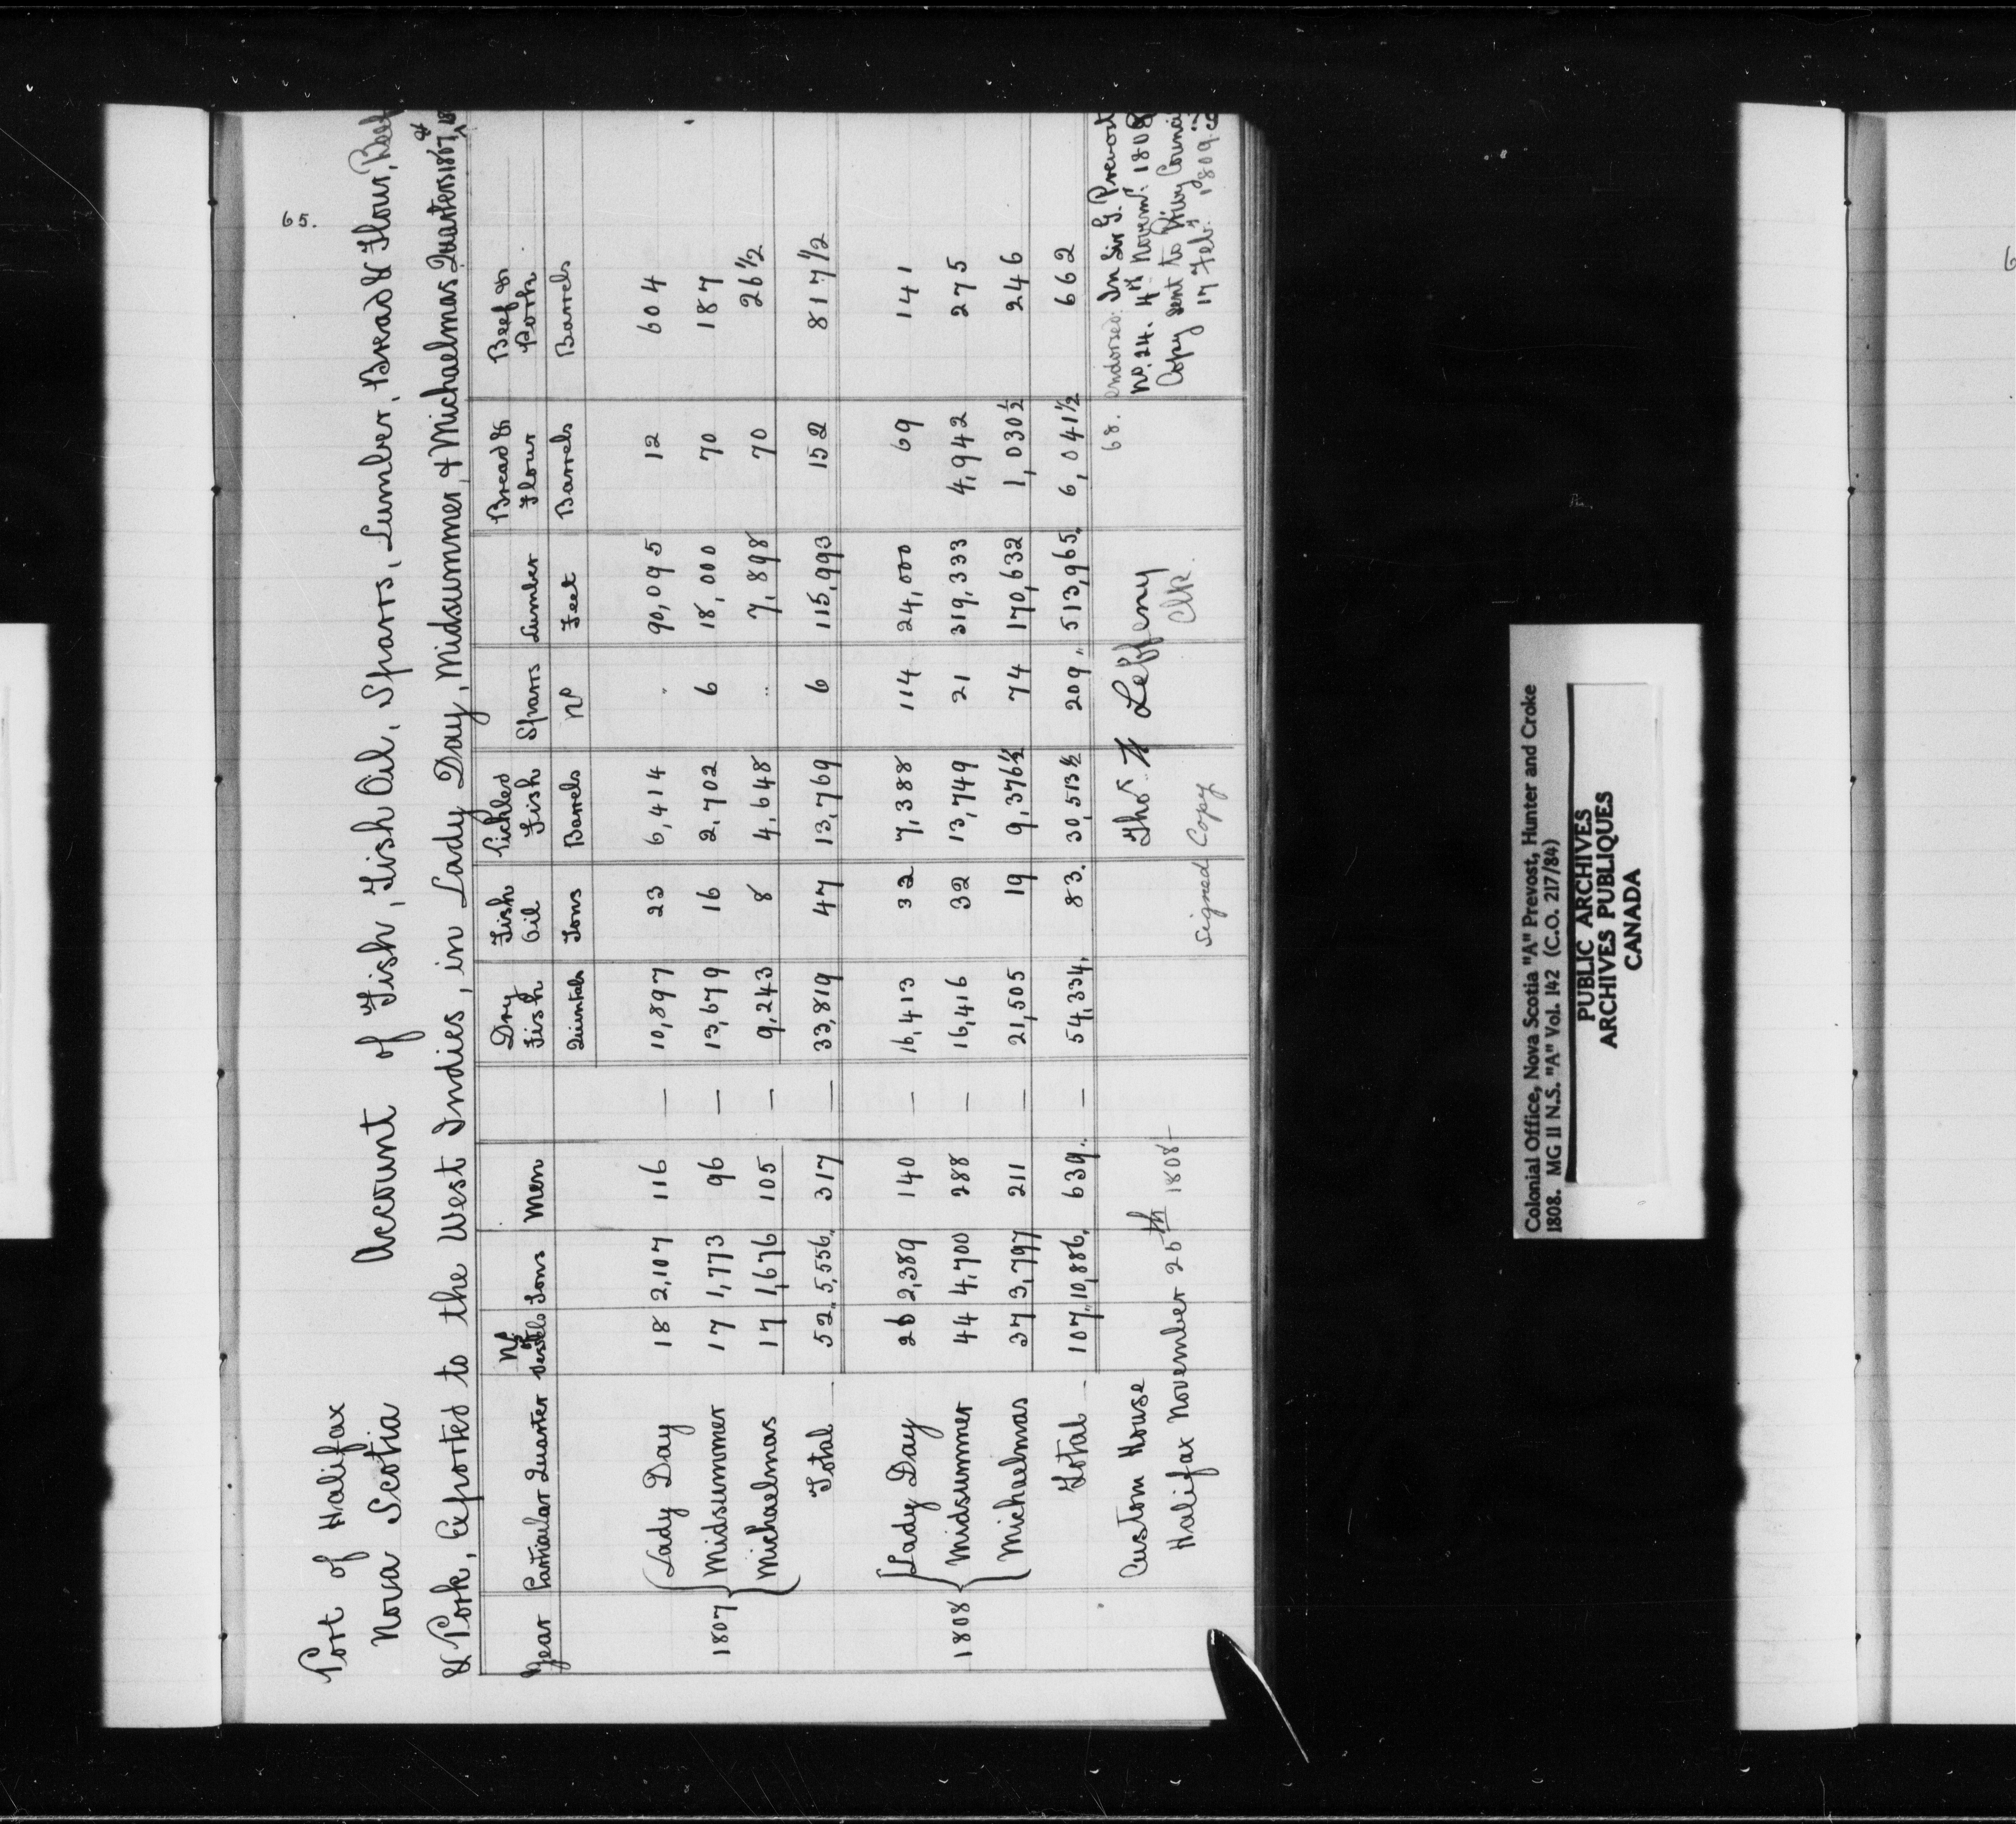 65.
Port of Halifax
Nova Scotia
Account of Fish, Fish Oil, Sparrs, Lumber, Bread & Flour, Beef
& Pork, Exported to the West Indies, in Lady Day, Midsummer, & Michaelmas Quarters 1807, &
Year Particular Quarter No of Vessels Tons Men Dry Fish Fish Oil Pickled Fish Sparrs Lumber Bread & Flour Beef & Pork
Quintals Tons Barrels No Feet Barrels Barrels
Lady Day 18 2,107 116 — 10,897 23 6,414 " 90,095 12 604
1807 Midsummer 17 1,773 96 — 13,679 16 2,702 6 18,000 70 187
Michaelmas 17 1,676 105 — 9,243 8 4,648 " 7,898 70 26 1/2
Total 52,, 5,556,, 317 — 33,819 47 13,769 6 115,993 152 817 1/2
Lady Day 26 2,389 140 — 16,413 32 7,388 114 24,000 69 141
1808 Midsummer 44 4,700 288 — 16,416 32 13,749 21 319,333 4,942 275
Michaelmas 37 3,797 211 — 21,505 19 9,376 1/2 74 170,632 1,030 1/2 246
Total 107,, 10,886, 639. — 54,334, 83. 30,513 1/2 209,, 513,965, 6,041 1/2 662
Custom House
Halifax November 26th 1808
Thos N Leffeny
Clk.
Signed Copy
68. endorsed: In Sir G. Prevost
No. 24. 4th Novemr. 1808
Copy sent to Privy Council
17 Feby. 1809
Colonial Office, Nova Scotia "A" Prevost, Hunter and Croke
1808. MG 11 N.S. "A" Vol. 142 (C.O. 217/84)
PUBLIC ARCHIVES
ARCHIVES PUBLIQUES
CANADA